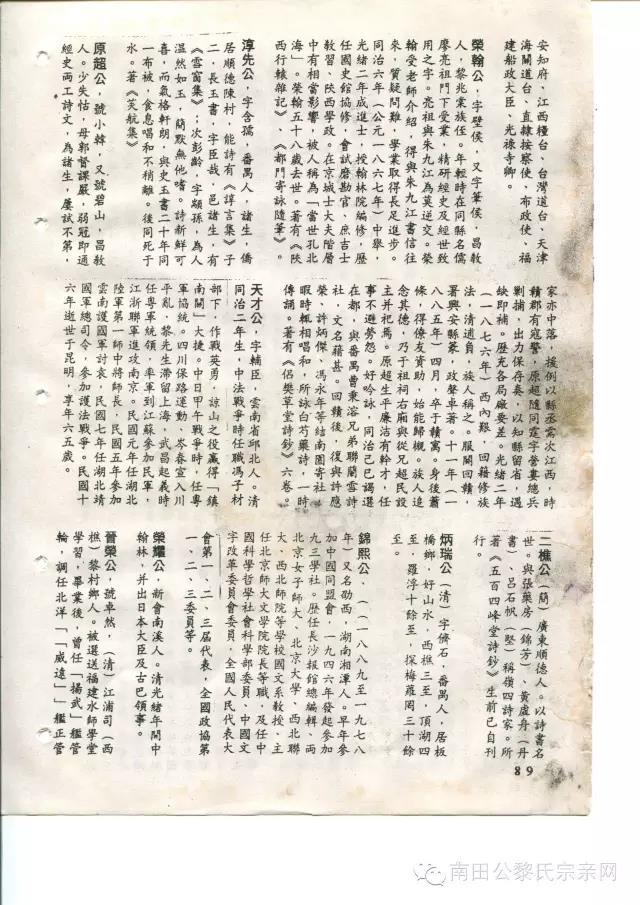 安知府、江西糧台、台灣道台、天津
海關道台、直隸按察使、布政使、福
建船政大臣、光祿寺卿。
榮翰公，字壁侯，又字筆侯，昌教
人，黎兆棠族侄。年輕時在同縣名儒
廖亮祖門下受業，精研經史及經世致
用之字。亮祖與朱九江為莫逆交。榮
翰受老師介紹，得與朱九江書信往
來，質疑問難，學業取得長足進步。
同治六年（公元一八六七年）中舉，
光緒二年成進士，授翰林院編修，歷
任國史館協修，會試磨勘官、庶吉士
教習、陝西學政。在京城士大夫階層
中有相當影響，被人稱為「當世孔北
海」。榮翰五十八歲去世。著有《陝
西行轅雜記》、《都門寄詠隨筆》。
淳先公，字含孺，番禺人，諸生，僑
居順德陳村，能詩有《諄言集》子
二，長玉書，字臣哉，邑諸生，有
《雲窗集》；次彭齡，字顓孫，為人
溫然如玉，簡默無他嗜。詩新鮮可
喜，而氣格軒朗，與史玉書二十年同
一布被，食息唱和不稍離。後同死于
水。著《芙航集》
原超公，號小韓，又號碧山，昌教
人。少失怙，母郭督課嚴，弱冠即通
經史両工詩文，為諸生，屢試不第，
家亦中落，援例以縣丞需次江西，時
贛郡有寇警，原超隨同霆字營婁總兵
剿捕，出力保存奏，以知縣留省，遇
缺即補。歷充各局廠要差。光緒二年
（一八七六年）西內艱，回籍修族
法，清逋負，族人稱之。服闋回贛，
署興安縣篆，政聲卓著。十一年（一
八八五年）四月，卒于贛寓。身後蕭
條，得僚友資助，始能歸櫬。族人追
念其德，乃于祖祠右廂與從兄超民設
主并祀焉。原超生平廉洁有幹才，任
事不避勞怨。好吟詠，同治己巳謁選
在都，與番禺曹秉濬兄弟聯蘭雪詩
社，文名藉甚。回贛後，復與許應
榮、許炳傑、馮永年等結南園寄社，
暇時輒相唱和，所詠白芍藥詩，一時
傳誦。著有《侶樊草堂詩鈔》六卷。
天才公，字輔臣，雲南省邱北人。清
同治二年生，中法戰爭時任職馮子材
部下，作戰英勇，諒山之役贏得「鎮
南關」大捷。中日甲午戰爭時，任粵
軍協統。四川保路運動、岑春宣入川
平亂，黎先生滯留上海，武昌起義時
任粵軍統領，率軍到江蘇參加民軍，
江浙聯軍進攻南京。民國元年任湖北
陸軍第一師中將師長，民國五年參加
雲南護國軍討袁，民國七年任湖北靖
國軍總司令，參加護法戰爭。民國十
六年逝世于昆明，享年六五歲。
二樵公（簡）廣東順德人。以詩書名
世。與張藥房（錦芳）、黃虛舟（丹
書）、呂石帆（堅）稱嶺四詩家。所
著《五百四峰堂詩鈔》生前已自刊
行。
炳瑞公（清）字儕石，番禺人，居板
橋鄉，好山水，西樵三至，頂湖四
至，羅浮十餘至，探梅蘿岡三十餘
至。
錦熙公，（一八八九至一九七八
年）又名劭西，湖南湘潭人。早年參
加中國同盟會，一九四六年發起參加
九三學社。歷任長沙報館總編輯、両
北京女子師大、北京大學、西北聯
大、西北師院等學校國文系教授、主
任北京師大文學院院長等職，及任中
國科學哲學社會科學部委員、中國文
字改革委員會委員，全國人民代表大
會第一、二、三屆代表，全國政協第
一、二、三委員等。
榮耀公，新會南溪人。清光緒年間中
翰林，并出日本大臣及古巴領事。
晉榮公，號卓然，（清）江浦司（西
樵）黎村鄉人。被選送福建水師學堂
學習，畢業後，曾任「揚武」艦管
輪，調任北洋「「威遠」」艦正管
89
南田公黎氏宗亲网